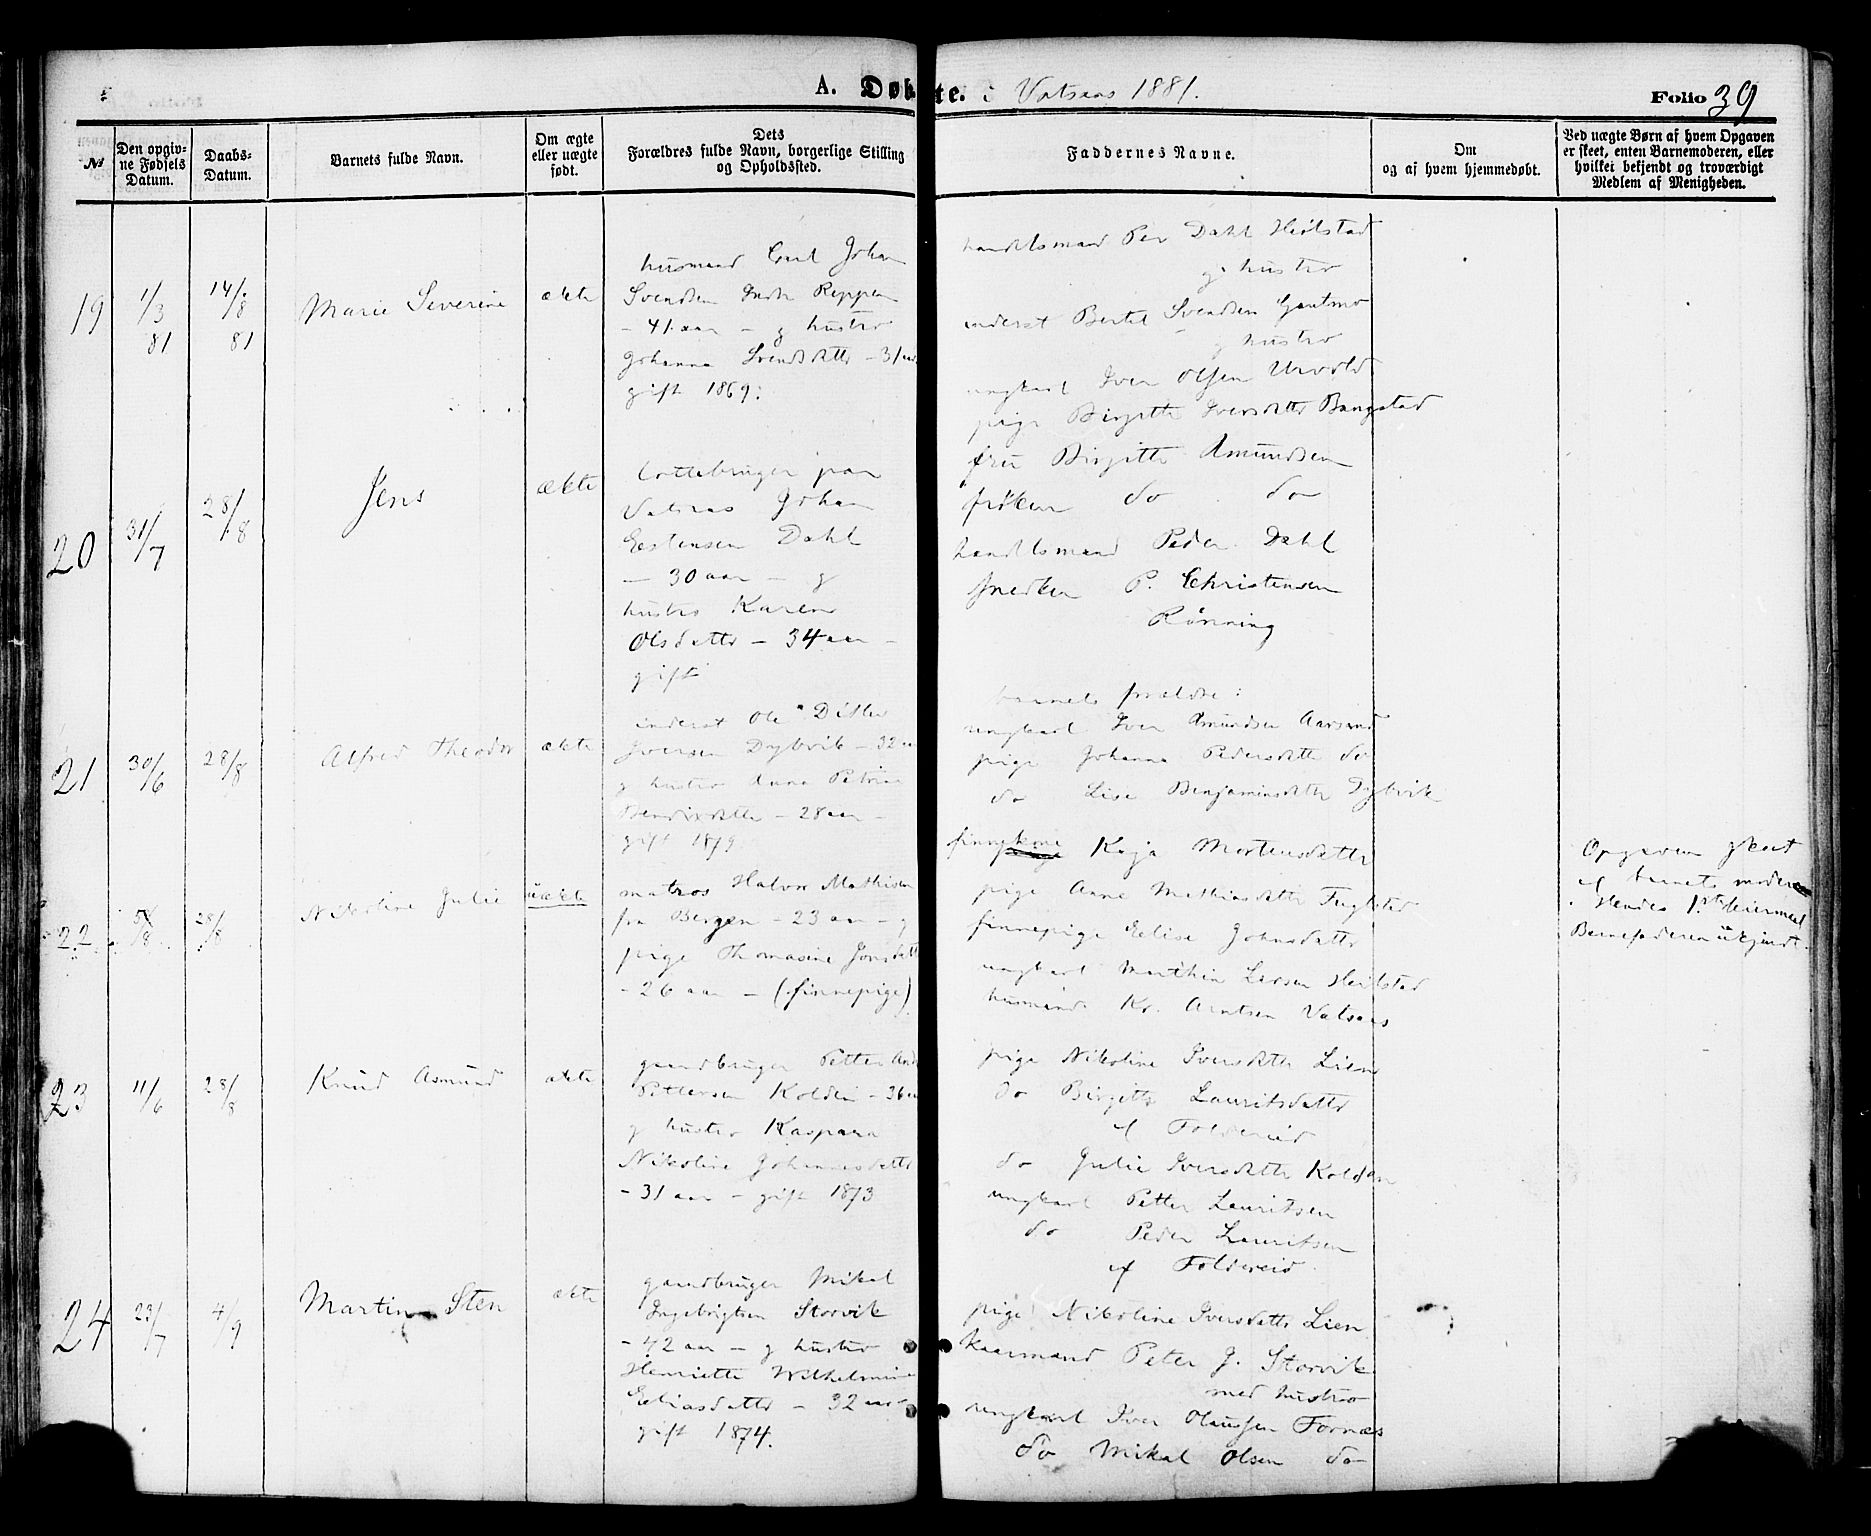 A. Døbte. i Vatsaas 1881.
Folio 39
№
Den opgivne Fødsels Datum.
Daabs-Datum.
Barnets fulde Navn.
Om ægte eller uægte født.
Dets Forældres fulde Navn, borgerlige Stilling og Opholdssted.
Faddernes Navne.
Om og af hvem hjemmedøbt.
Ved uægte Børn af hvem Opgaven er skeet, enten Barnemoderen, eller hvilket bekjendt og troværdigt Medlem af Menigheden.
19
1/3 81
14/8 81
Marie Severine
ækte
husmand Carl Johan
Svendsen Indr Reppen
- 41 aar - g hustro
Johanna Svendsdattr - 31 aar
gift 1869.
handelsmand Per Dahl Heilstad
g hustro
inderst Bertel Svendsen
g hustro
ungkarl Iver Olsen Urvold
pige Birgitte Iversdattr Bangstad
20
31/7
28/8
Jens
ækte
lottebruger paa
Vatsaas Johan
Estensen Dahl
- 30 aar - g
hustro Karen
Olsdattr - 34 aar -
gift
fru Birgitte Amundsen
frøken do do
handelsmand Peder Dahl
snedker P. Christensen
Rønning
21
30/6
28/8
Alfred Theodor
ækte
inderst Ole Ditlev
Iversen Dybvik - 32 aar
g hustro Anna Petrine
Bendixdattr - 28 aar -
gift 1879
barnets forældre:
ungkarl Iver Amundsen Aarsand
pige Johanna Pedersdattr do
do Lise Benjaminsdattr Dybvik
22
28/8
Nikoline Julie
uækte
matros Halvor Mathisen
fra Bergen - 23 aar - g
pige Thomasine Jonsdatt
- 26 aar - (finnepige)
finnekone Kaja Mortensdattr
pige Anne Mathiasdattr Fuglstad
finnepige Elise Johnsdattr
ungkarl Marthin Larsen Heilstad
husmand Kr. Arntsen Vatsaas
Opgaven skeet
af barnets moder
Hendes 1ste leiermaal
Barnefaderen ukjendt.
23
11/6
28/8
Knud Asmund
ækte
gaardbruger Petter And
Pettersen Kolden - 36 aar
g hustro Kaspara
Nikoline Johannesdattr
- 31 aar - gift 1873
pige Nikoline Iversdattr Lien
do Birgitte Lauritsdattr
af Foldereid
do Julie Iversdattr Kolden
ungkarl Petter Lauritsen
do Peder Lauritsen
af Foldereid
24
23/7
4/9
Martin Sten
ækte
gaardbruger Mikal
Ingebrigtsen Storvik
- 42 aar - g hustro
Henriette Wilhelmine
Eliasdattr - 32 aar -
gift 1874.
pige Nikoline Iversdattr Lien
kaarmand Peter J. Storvik
med hustro
ungkarl Iver Olaussen Fornæs
do Mikal Olsen do